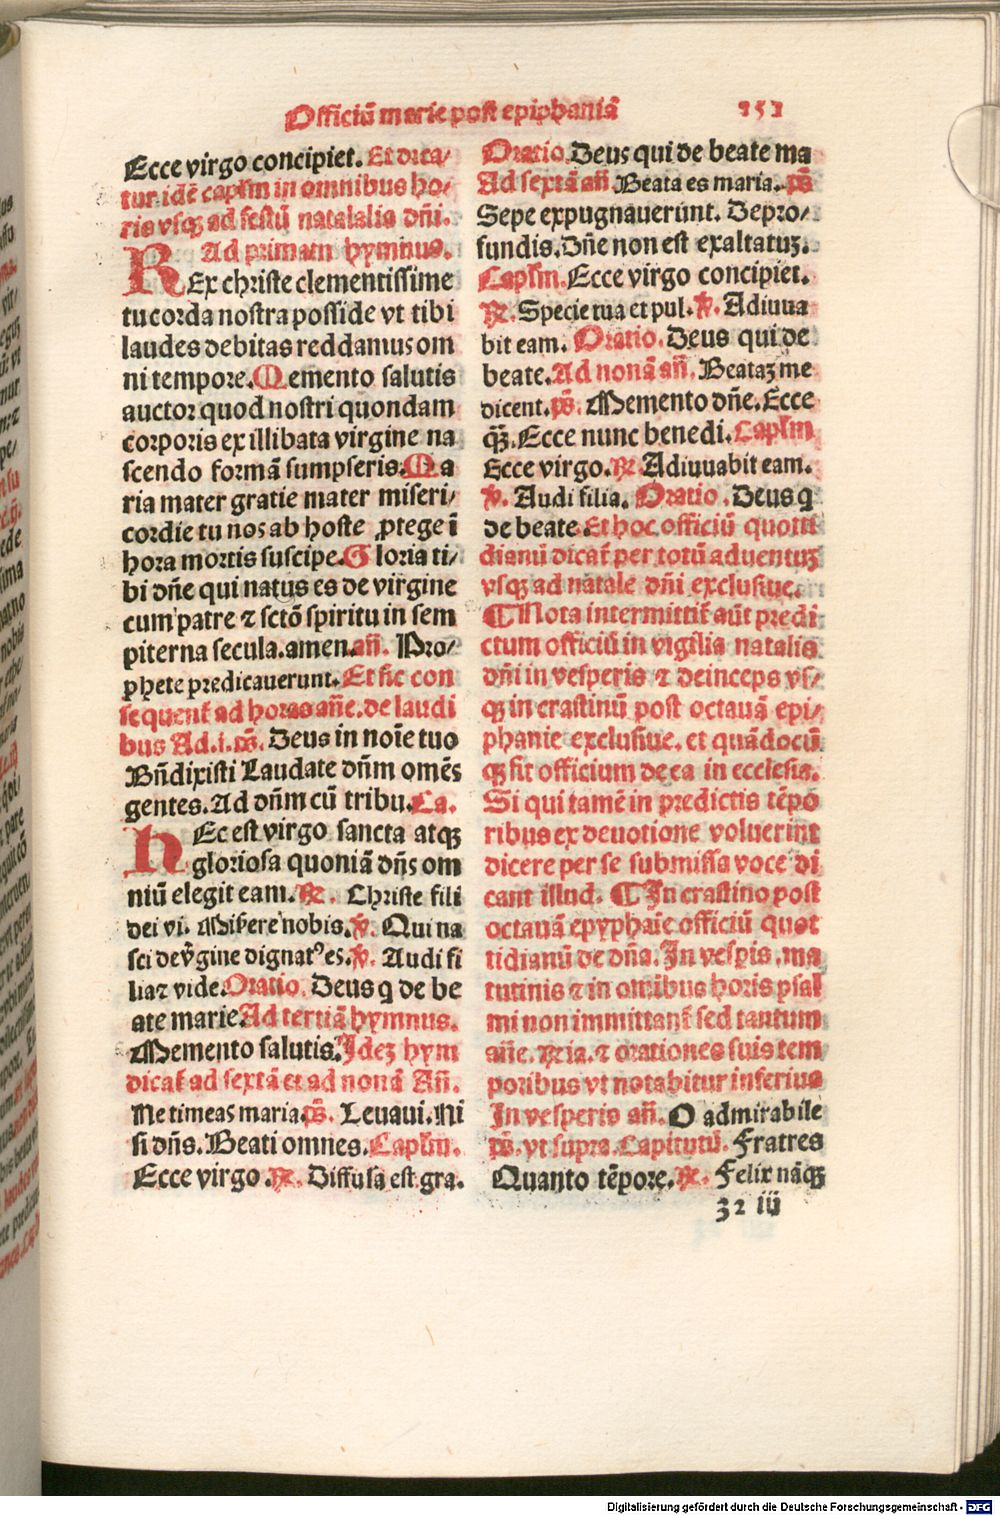 Officiũ marie post epiphaniã 151
Ecce virgo concipiet. Et dica/
tur idẽ caplm in omnibus ho/
ris vsqꝫ ad festũ natalalis dñi.
Ad primam hymnus.
REx christe clementissime
tu corda nostra posside vt tibi
laudes debitas reddamus om
ni tempore. Memento salutis
auctor quod nostri quondam
corporis ex illibata virgine na
scendo formã sumpseris. Ma
ria mater gratie mater miseri/
cordie tu nos ab hoste ꝓtege ĩ
hora mortis suscipe. Gloria ti/
bi dñe qui natus es de virgine
cum patre ⁊ sctõ spiritu in sem
piterna secula. amen. añ. Pro/
phete predicauerunt. Et sic con
sequenṫ ad horas añe. de laudi
bus Ad .i. ps̃. Deus in noĩe tuo
Bñdixisti Laudate dñm omẽs
gentes. Ad dñm cũ tribu. Ca.
HEc est virgo sancta atqꝫ
gloriosa quoniã dñs om
niũ elegit eam. ℞. Christe fili
dei vi. Miserere nobis. ℣. Qui na
sci de v̓gine dignatꝰ es. ℣. Audi fi
lia ⁊ vide. Oratio. Deus q de be
ate marie. Ad tertiã hymnus.
Memento salutis. Idez hym
dicaṫ ad sextã et ad nonã Añ.
Ne timeas maria. ps̃. Leuaui. Ni
si dñs. Beati omnes. Caplm.
Ecce virgo. ℞. Diffusa est gra.
Oratio. Deus qui de beate ma
Ad sextã añ. Beata es maria. ps̃
Sepe expugnauerunt. De pro/
fundis. Dñe non est exaltatuꝫ.
Caplm. Ecce virgo concipiet.
℞. Specie tua et pul. ℣. Adiuua
bit eam. Oratio. Deus qui de
beate. Ad nonã añ. Beataꝫ me
dicent. ps̃. Memento dñe. Ecce
q̃ꝫ. Ecce nunc benedi. Caplm
Ecce virgo. ℞. Adiuuabit eam.
℣. Audi filia. Oratio. Deus q
de beate. Et hoc officiũ quoti
dianũ dicaṫ per totũ aduentuꝫ
vsqꝫ ad natale dñi exclusiue.
¶ Nota intermittiṫ aũt predi
ctum officiũ in vigilia natalis
dñi in vesperis ⁊ deinceps vs/
qꝫ in crastinũ post octauã epi/
phanie exclusiue. et quãdocũ
qꝫ fit officium de ea in ecclesia.
Si qui tamẽ in predictis tẽpo
ribus ex deuotione voluerint
dicere per se submissa voce di
cant illud. ¶ In crastino post
octauã epyphaĩe officiũ quot
tidianũ de dña. In vesꝑis. ma
tutinis ⁊ in omĩbus horis psal
mi non immittanṫ sed tantum
añe. ℞ia. ⁊ orationes suis tem
poribus vt notabitur inferius
In vesperis añ. O admirabile
ps̃. vt supra. Capitulũ. Fratres
Quanto tẽpore. ℞. Felix nãqꝫ
32 iij
Digitalisierung gefördert durch die Deutsche Forschungsgemeinschaft - DFG